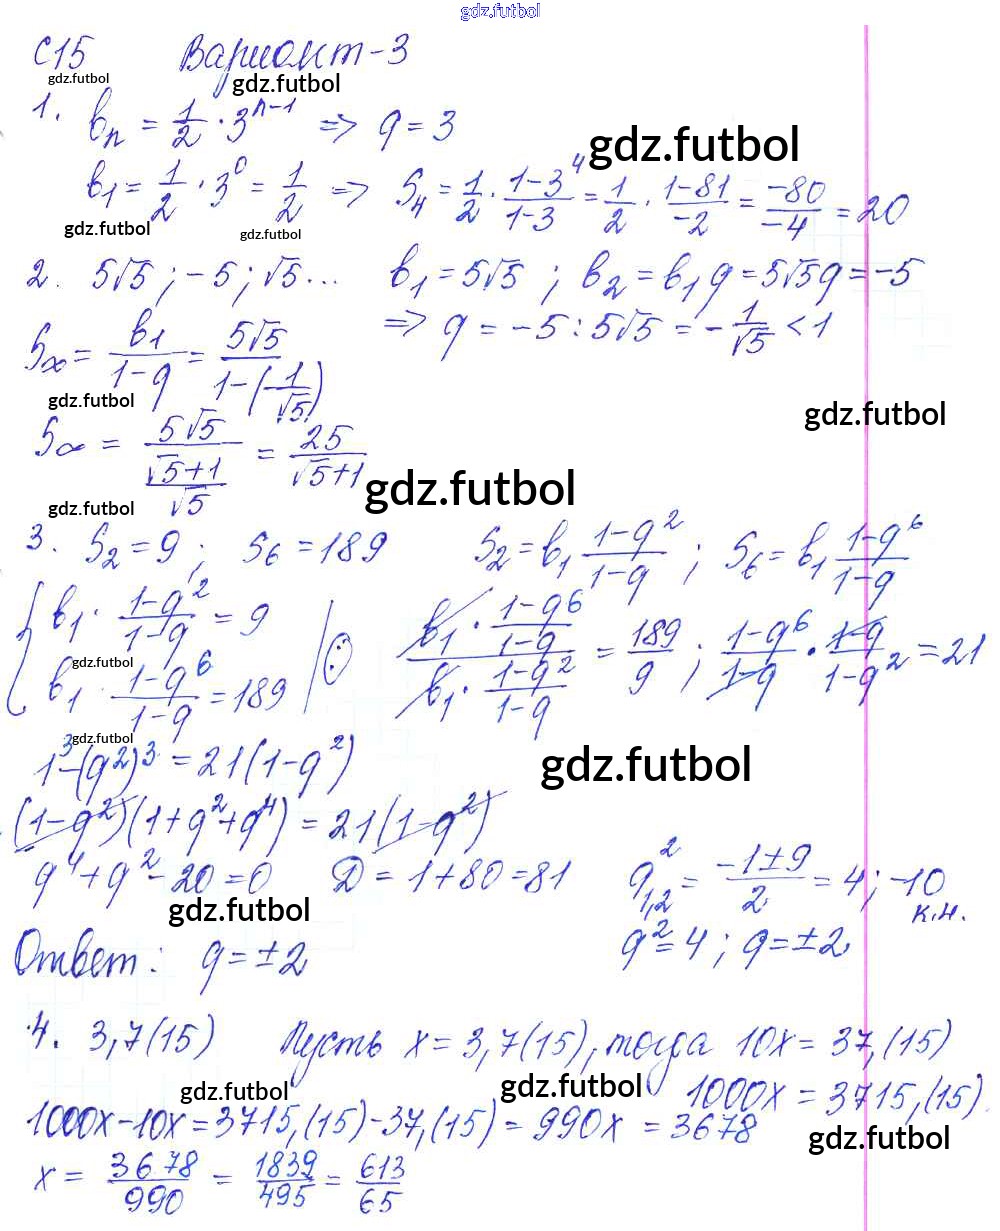 gdz.futbol
С15 Вариант-3
gdz.futbol gdz.futbol
1. bₙ = 1/2 · 3ⁿ⁻¹ => q = 3
gdz.futbol
b₁ = 1/2 · 3⁰ = 1/2 => S₄ = 1/2 · (1-3⁴)/(1-3) = 1/2 · (1-81)/(-2) = (-80)/(-4) = 20
gdz.futbol gdz.futbol
2. 5√5 ; -5 ; √5 ... b₁ = 5√5 ; b₂ = b₁q = 5√5q = -5
=> q = -5 : 5√5 = -1/√5 < 1
S∞ = b₁/(1-q) = 5√5/(1-(-1/√5))
gdz.futbol gdz.futbol
S∞ = 5√5/((√5+1)/√5) = 25/(√5+1)
gdz.futbol gdz.futbol
3. S₂ = 9 ; S₆ = 189 S₂ = b₁ (1-q²)/(1-q) ; S₆ = b₁ (1-q⁶)/(1-q)
{ b₁ · (1-q²)/(1-q) = 9
b₁ · (1-q⁶)/(1-q) = 189 | : (b₁ · (1-q⁶)/(1-q))/(b₁ · (1-q²)/(1-q)) = 189/9 ; (1-q⁶)/(1-q) · (1-q)/(1-q²) = 21
gdz.futbol
gdz.futbol
1³-(q²)³ = 21(1-q²)
gdz.futbol
(1-q²)(1+q²+q⁴) = 21(1-q²)
q⁴+q²-20 = 0 D = 1+80 = 81 q²₁,₂ = (-1±9)/2 = 4 ; -10 к.н.
gdz.futbol
Ответ: q = ±2 q² = 4 ; q = ±2
4. 3,7(15) Пусть x = 3,7(15), тогда 10x = 37,(15)
gdz.futbol gdz.futbol
1000x = 3715,(15)
1000x-10x = 3715,(15)-37,(15) = 990x = 3678
gdz.futbol
x = 3678/990 = 1839/495 = 613/65